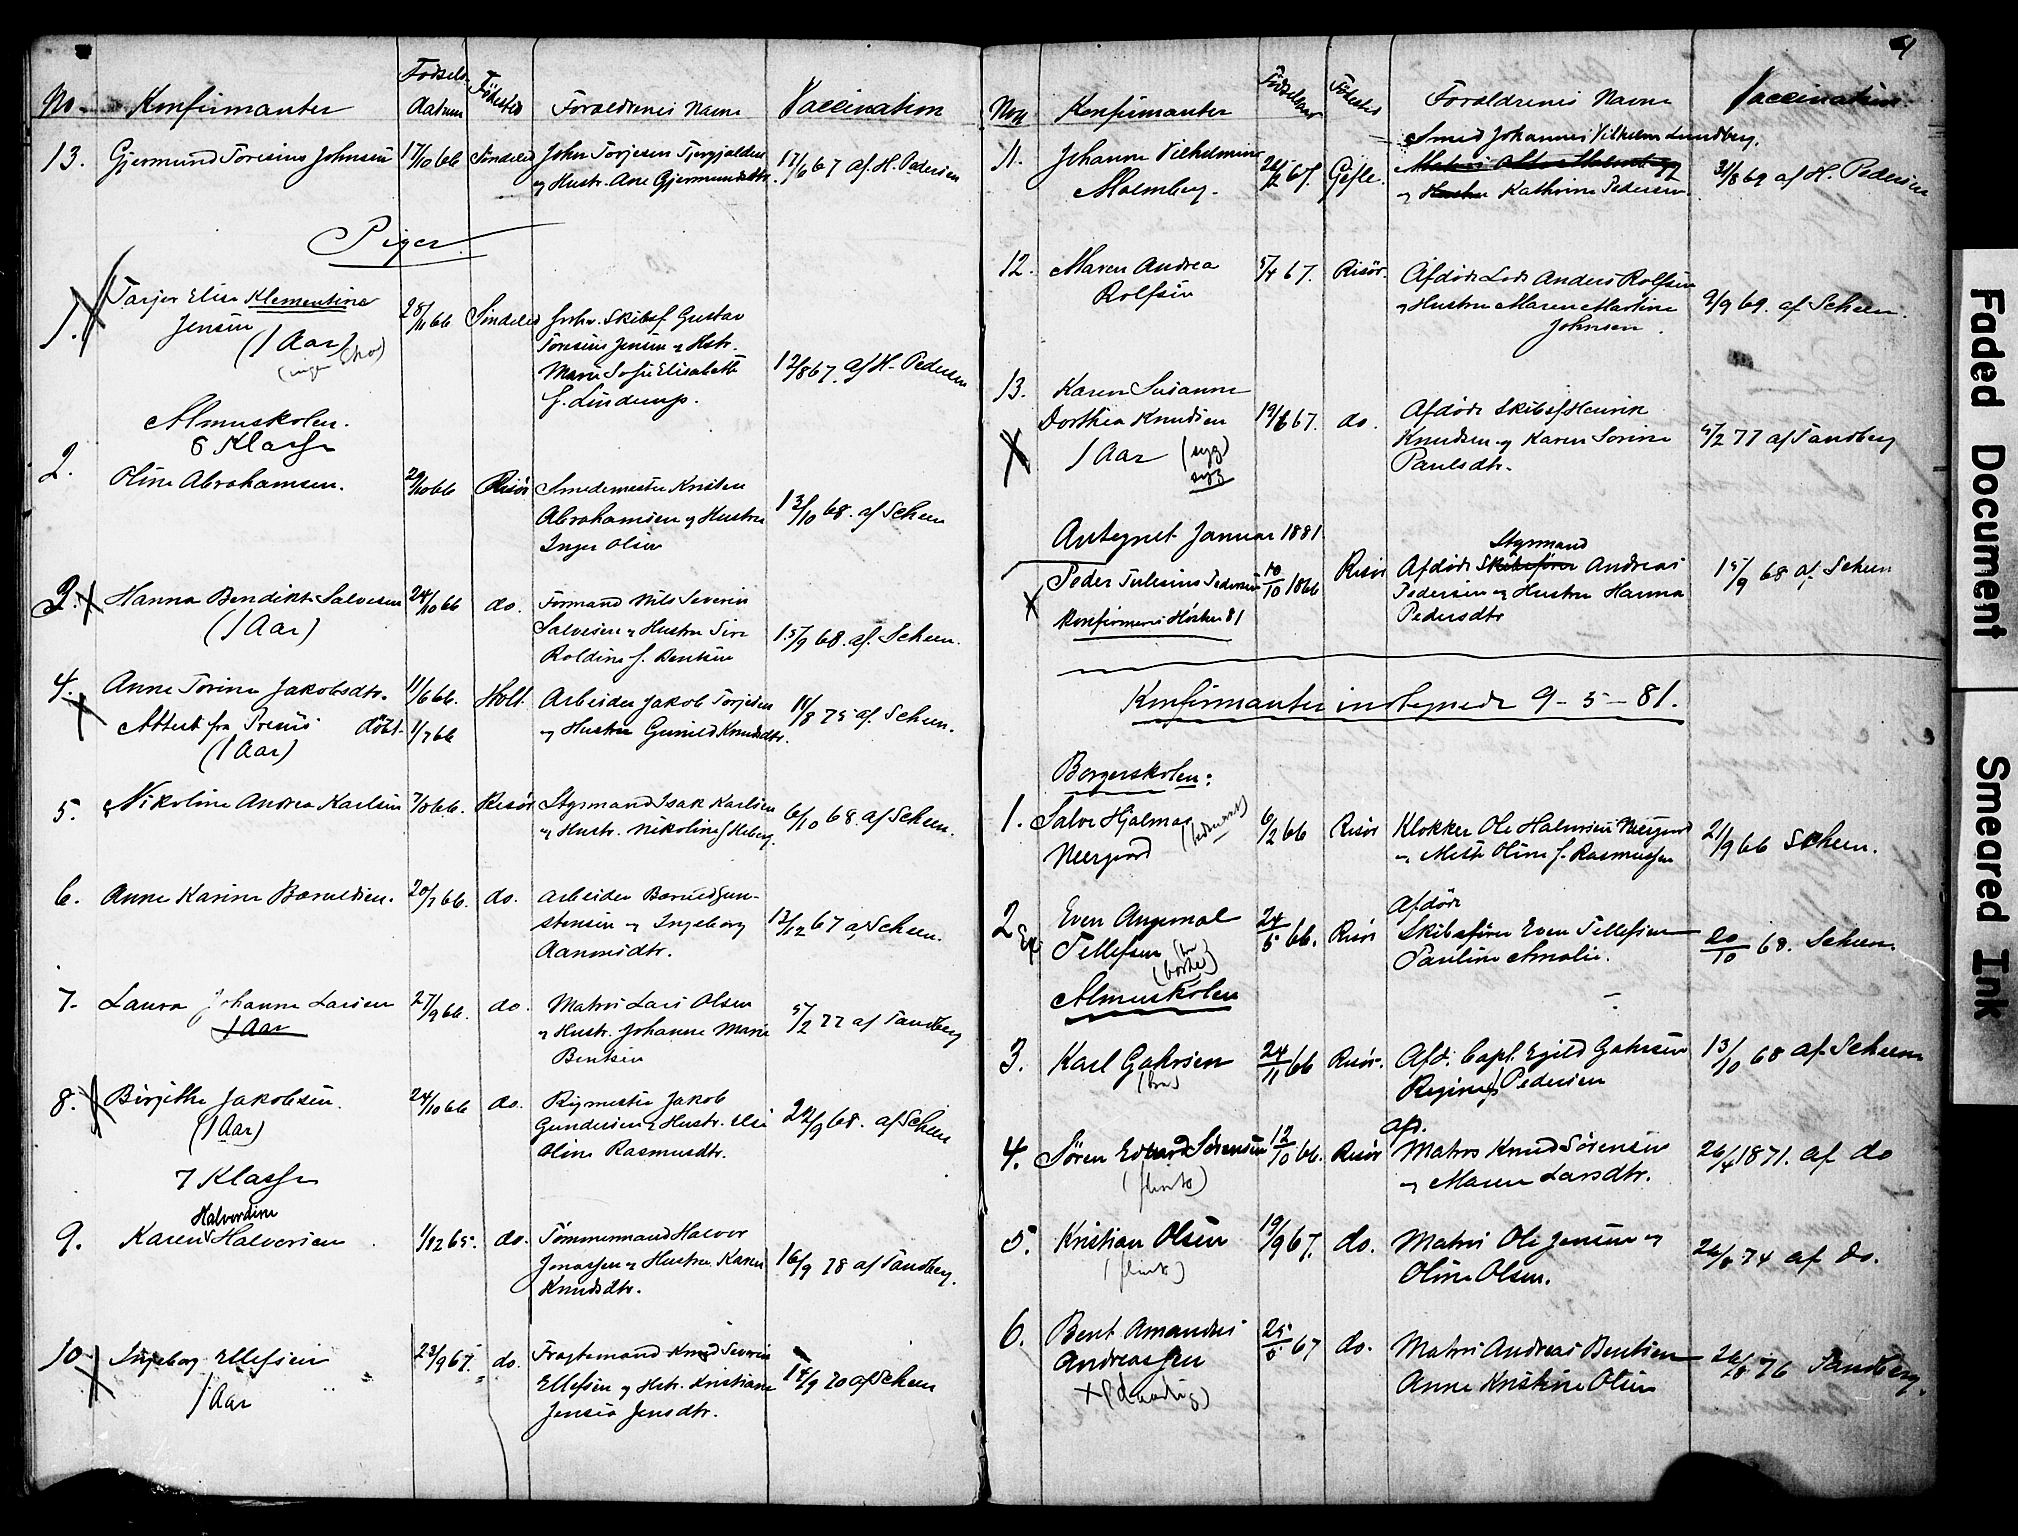 No Konfirmanter Fødsels- datum Fødested Forældrenes Navne Vaccination
13. Gjermund Toresius Johnsen 17/10 66 Søndeled John Torjesen
og Hustr. Ane Gjermundsdtr. 17/6 67 af H. Pedersen
Piger
1. Tarjer Elise Klementine
Jensen
(1 Aar)
28/11 66 Søndeled Skibsf. Gustav
Toresius Jensen og Hstr.
Maren Sofie Elisabeth
f. Lindstrup.
12/8 67. af H. Pedersen
Almuskolen.
8 Klasse
2. Oline Abrahamsen. 29/10 66 Risør Smedemester Kristen
Abrahamsen og Hustru
Inger Olsen
13/10 68. af Scheen
3. Hanna Bendikte Salvesen
(1 Aar)
24/10 66 do. Formand Nils Severin
Salvesen og Hustru Sire
Roldine f. Bentsen
15/9 68. af. Scheen.
4. Anne Torine Jakobsdtr.
Attest fra Præsis døbt
(1 Aar)
11/6 66. 1/7 66
Holt. Arbeider Jakob Torjesen
og Hustru Gunild Knudsdtr.
18/8 75 af. Scheen.
5. Nikoline Andrea Karlsen 7/8 66. Risør Styrmand Isak Karlsen
og Hustr. Nikoline f. Heberg
6/10 68. af Scheen.
6. Anne Karine Baruldsen. 20/7 66. do. Arbeider Baruld Gun-
stensen og Ingeborg
Aanonsdtr.
12/12 67 af Scheen.
7. Laura Johanne Larsen
1 Aar
27/9 66. do. Matros Lars Olsen
og Hustr. Johanne Marie
Bentsen
5/2 77 af Tandberg
8. Birgithe Jakobsen.
(1 Aar)
24/10 66 do. Rigmester Jakob
Gundersen og Hustr. Else
Oline Rasmusdtr.
24/9 68. af Scheen
7 Klasse
Halvordine
9. Karen Halvorsen 1/12 65. do. Tømmermand Halvor
Jonassen og Hustru Karen
Knudsdtr.
16/9 78 af Tandberg.
10 Ingeborg Ellefsen
1 Aar
23/9 67. do. Fragtemand Knud Severin
Ellefsen og Hstr. Kristiane
Jensea Jensdtr.
14/9 70 af Scheen
Non Konfirmanter Fødselsaar Fødested Forældrenes Navne Vaccination
11. Johanne Vilhelmine
Malmberg.
22/2 67. Gefle. Smed Johannes Vilhelm Lundberg.
og Hustru Kathrine Pedersen.
31/8 69 af H. Pedersen
12. Maren Andrea
Rolfsen
5/4 67. Risør. Afdøde Lods Anders Rolfsen
og Hustru Maren Martine
Johnsen.
9/9 69. af Scheen.
13. Karen Susanne
Dorthea Knudsen
1 Aar (syg)
syg
19/6 67. do. Afdøde Skibsf. Henrik
Knudsen og Karen Sorine
Paulsdtr.
5/2 77 af Tandberg
Antegnet Januar 1881
Peder Tulesius Pedersen
Konfirmeres Høsten 81
10/10 1866 Risør Styrmand
Afdøde Skibsfører Andreas
Pedersen og Hustru Hanna
Pedersdtr
15/9 68 af Scheen
Konfirmanter indtegnede 9-5-81.
Borgerskolen:
1. Salve Hjalmar
Neergaard
6/2 66 Risør Klokker Ole Halvorsen Neergaard
og Mette Oline f. Rasmussen
21/9 66 Scheen.
2 Even Angemal
Tellefsen
24/5 66. Risør Afdøde
Skibsfører Even Tellefsen
Pauline Amalie.
20/10 68. Scheen
Almueskolen
3. Karl Gahrsen
24/11 66 Risør. Afd. Capt. Egild Gahrsen
Regine f. Pedersen
13/10 68 af Scheen
4. Søren Edvard Sørensen
(flink)
12/10 66. Risør afd.
Matros Knud Sørensen
og Maren Larsdtr.
26/4 1871. af do
5. Kristian Olsen
(flink)
19/9 67. do. Matros Ole Jensen og
Oline Olsen.
26/6 74 af do.
6. Bent Amandus
Andreassen
25/5 67 do. Matros Andreas Bentsen
Anne Kristine Olsen
26/8 76 Tandberg.
Faded Document
Smeared Ink